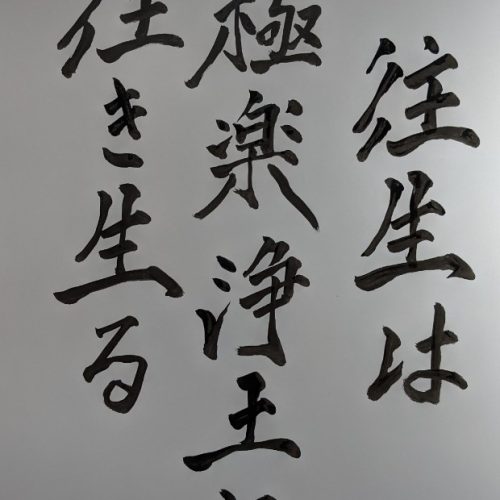 往生は
極楽浄土
往き生る